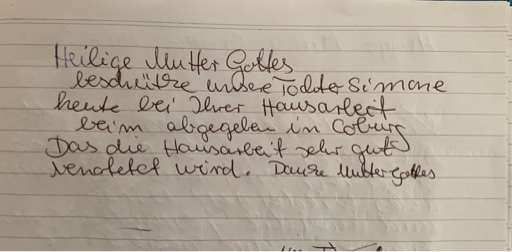 Heilige Mutter Gottes
beschütze unsere Tochter Simone
heute bei Ihrer Hausarbeit
beim abgegeben in Coburg
Das die Hausarbeit sehr gut
wird. Danke Mutter Gottes